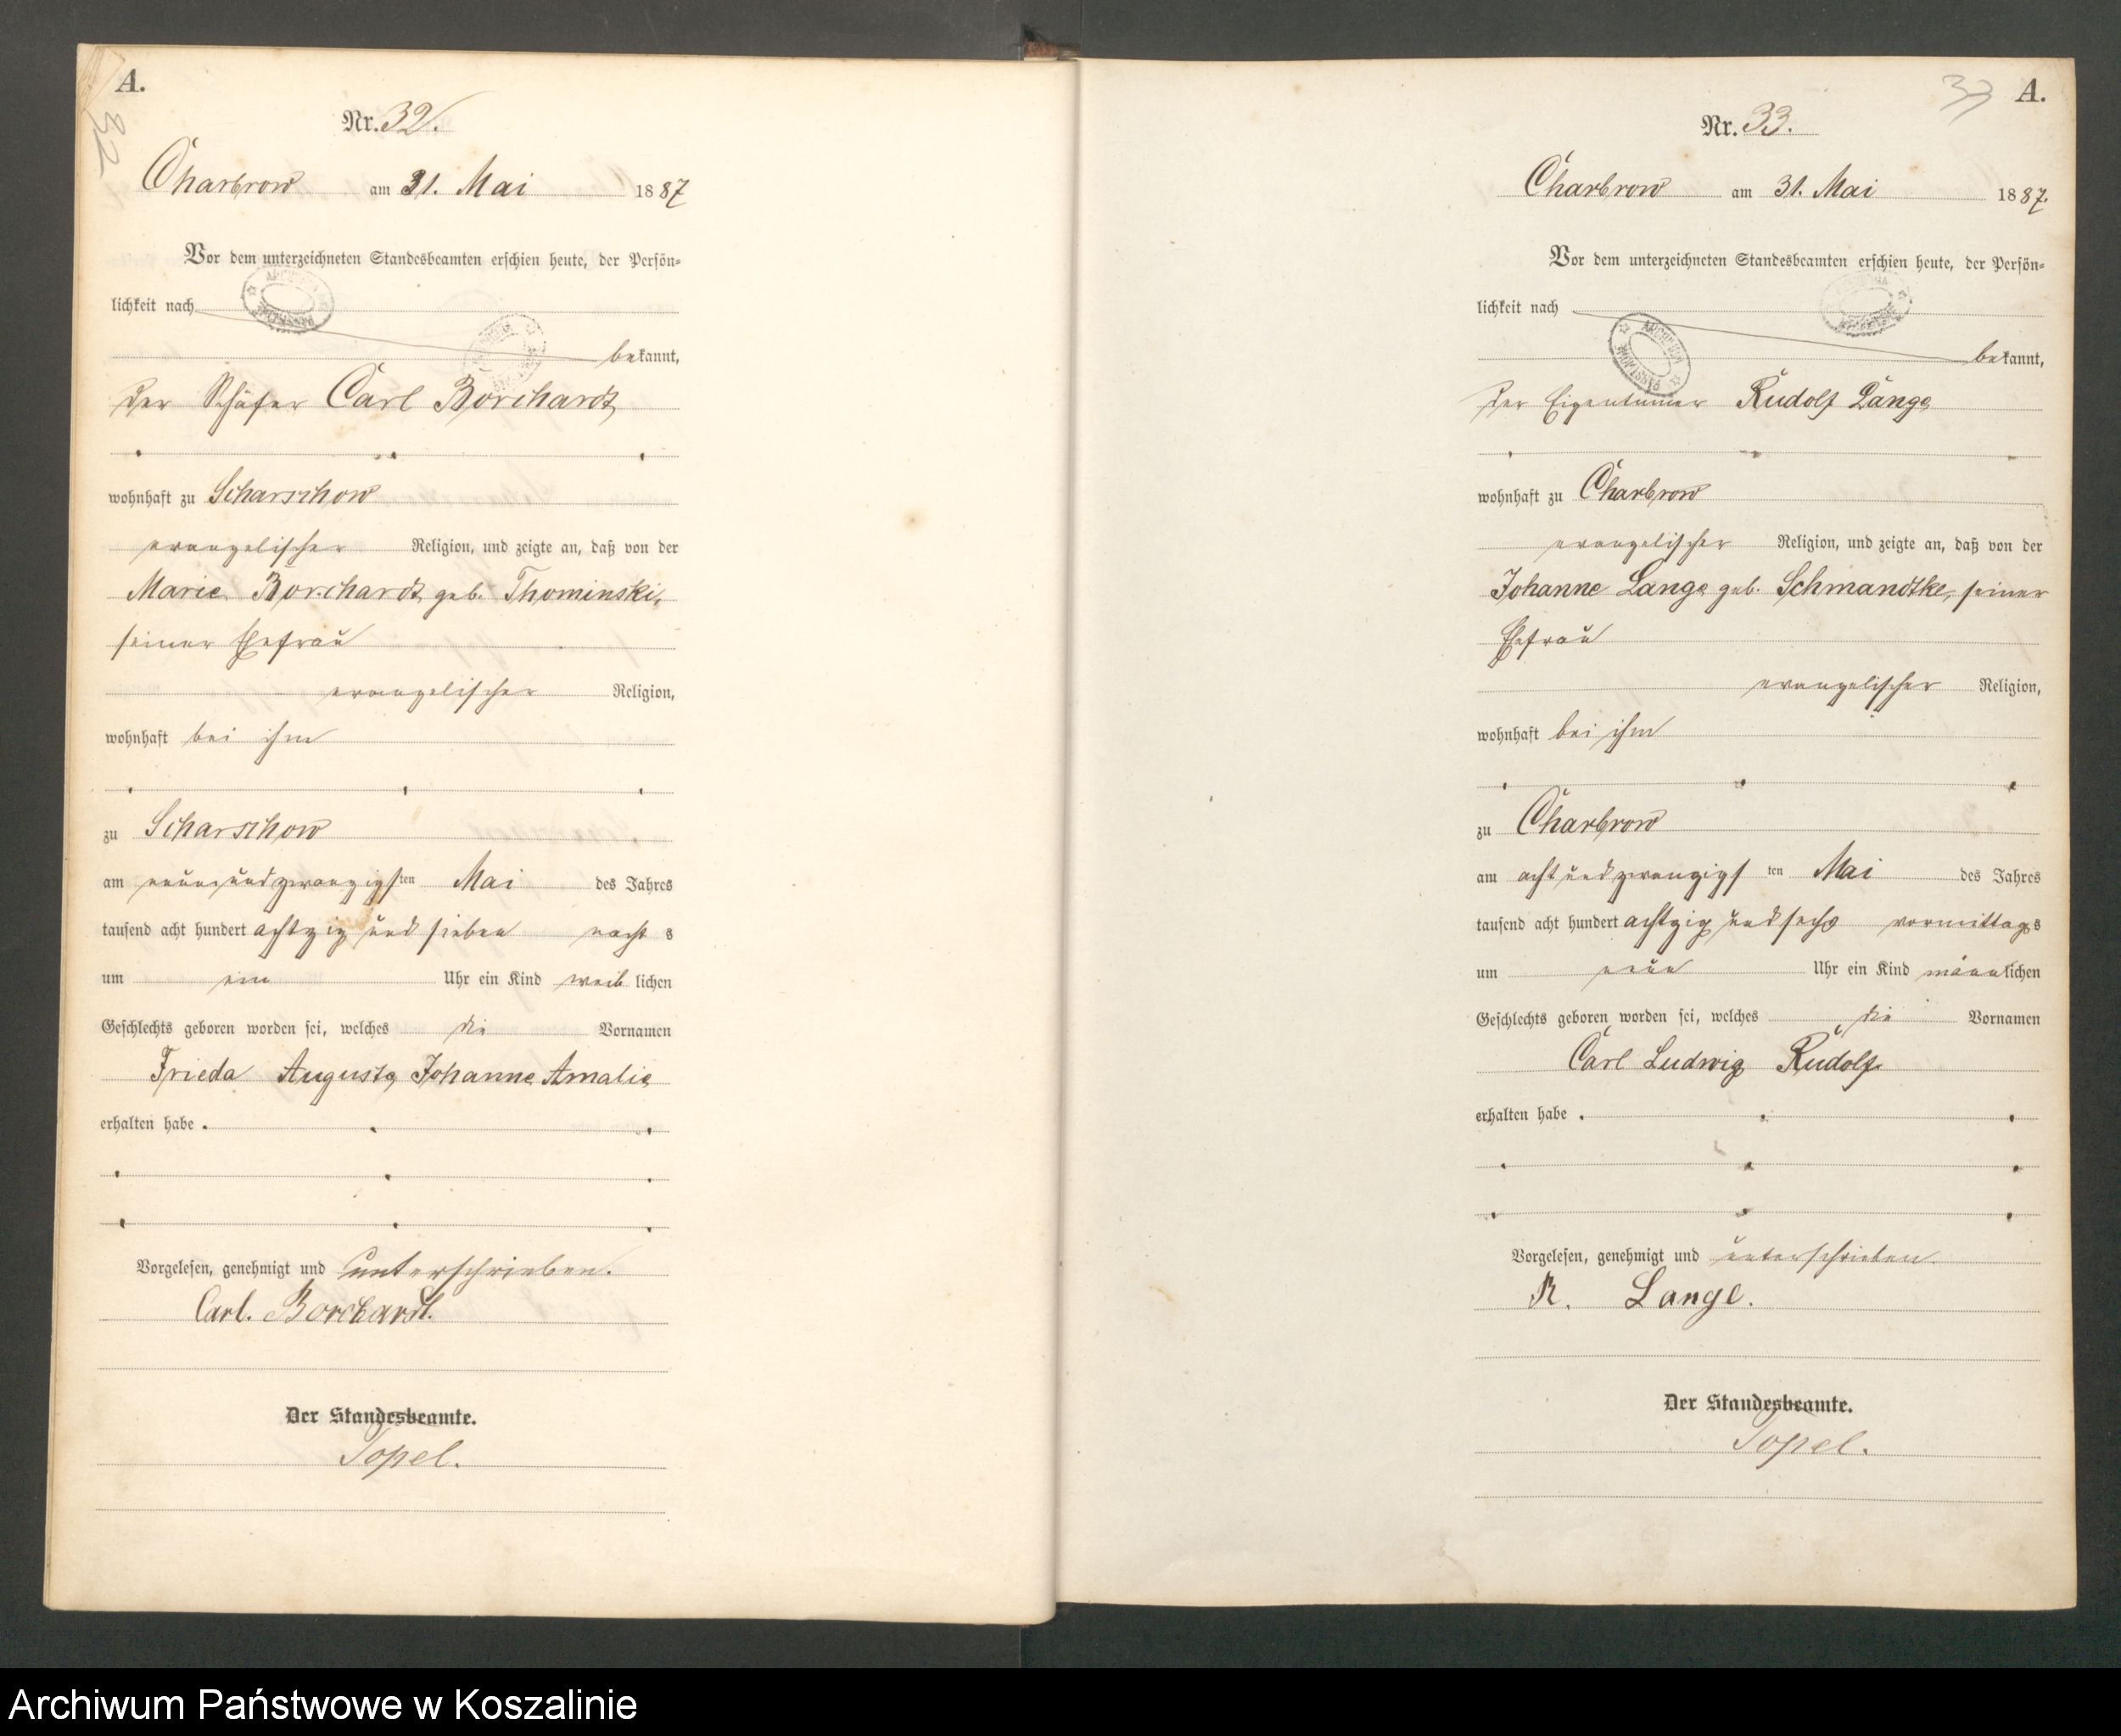 A.
32
Nr. 32.
Charbrow am 31. Mai 1887
Vor dem unterzeichneten Standesbeamten erschien heute, der Persön-
lichkeit nach
bekannt,
der Schäfer Carl Borchardt
wohnhaft zu Scharschow
evangelischer Religion, und zeigte an, daß von der
Marie Borchardt geb. Thominski,
seiner Ehefrau
evangelischer Religion,
wohnhaft bei ihm
zu Scharschow
am neunundzwanzigsten Mai des Jahres
tausend acht hundert achtzig und sieben nachts
um ein Uhr ein Kind weiblichen
Geschlechts geboren worden sei, welches die Vornamen
Frieda Auguste Johanne Amalie
erhalten habe.
Vorgelesen, genehmigt und unterschrieben.
Carl. Borchardt.
Der Standesbeamte.
Topel.
33 A.
Nr. 33.
Charbrow am 31. Mai 1887.
Vor dem unterzeichneten Standesbeamten erschien heute, der Persön-
lichkeit nach
bekannt,
der Eigentümer Rudolf Lange
wohnhaft zu Charbrow
evangelischer Religion, und zeigte an, daß von der
Johanne Lange geb. Schmandtke, seiner
Ehefrau
evangelischer Religion,
wohnhaft bei ihm
zu Charbrow
am achtundzwanzigsten Mai des Jahres
tausend acht hundert achtzig und sechs vormittags
um neun Uhr ein Kind männlichen
Geschlechts geboren worden sei, welches die Vornamen
Carl Ludwig Rudolf
erhalten habe.
Vorgelesen, genehmigt und unterschrieben.
R. Lange.
Der Standesbeamte.
Topel.
Archiwum Państwowe w Koszalinie